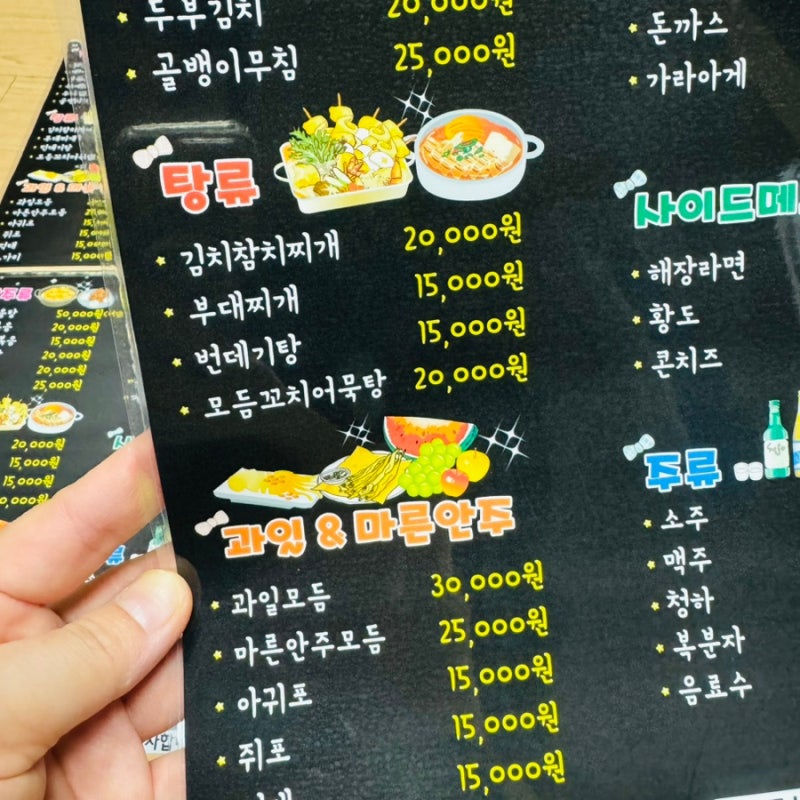 두부김치 20,000원
골뱅이무침 25,000원
탕류
김치참치찌개 20,000원
부대찌개 15,000원
번데기탕 15,000원
모듬꼬치어묵탕 20,000원
과일 & 마른안주
과일모듬 30,000원
마른안주모듬 25,000원
아귀포 15,000원
쥐포 15,000원
15,000원
돈까스
가라아게
사이드메
해장라면
황도
콘치즈
주류
소주
맥주
청하
복분자
음료수
과일모듬
마른안주모듬
아귀포 15,000
15,000원
15,000원
50,000원
20,000원
15,000원
20,000원
20,000원
25,000원
20,000원
15,000원
15,000원
20,000원